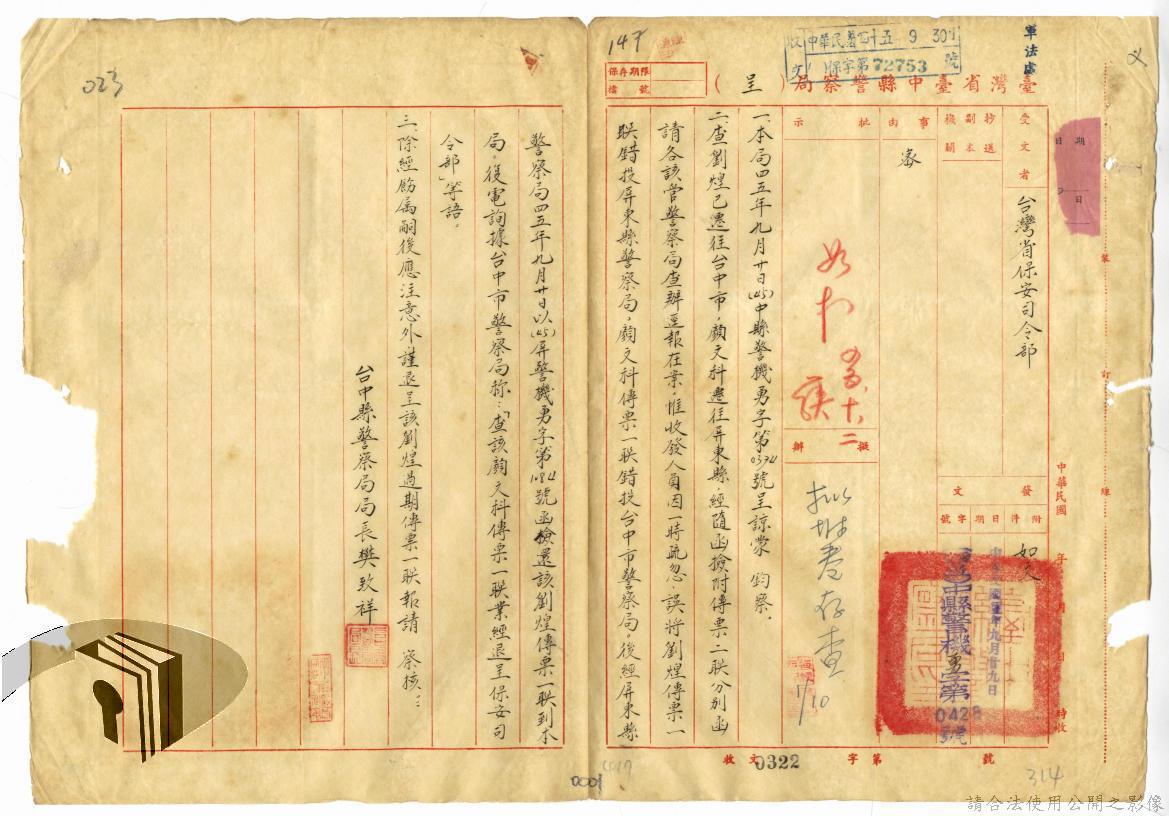 軍法處
收文 中華民國四十五 9 30
保字第72753號
147
保存期限
檔號
臺灣省臺中縣警察局(呈)
受文者
台灣省保安司令部
抄送副本機關
事由
批示
擬辦
如擬
十、二
擬附卷存查
1/10
發文
附件
日期
字號
如文
中華民國四五年九月廿九日
中縣警機勇字第0428號
一、本局四五年九月廿日(45)中縣警機勇字第0394號呈諒蒙 鈞察。
二、查劉煌已遷往台中市,顏文科遷往屏東縣,經隨函撿附傳票二聯分別函
請各該管警察局查辦逕報在案,惟收發人員因一時疏忽誤將劉煌傳票一
聯錯投屏東縣警察局,顏文科傳票一聯錯投台中市警察局。後經屏東縣
警察局四五年九月廿日以(45)屏警機勇字第1084號函檢還該劉煌傳票一聯到本
局,復電詢據台中市警察局称:「查該顏文科傳票一聯業經退呈保安司
令部」等語。
三、除經飭属嗣後應注意外謹退呈該劉煌過期傳票一聯報請 察核。
台中縣警察局局長樊致祥
中華民國 年 月 日 時收
收文 字第 號
0322
0001
023
314
裝
訂
線
請合法使用公開之影像